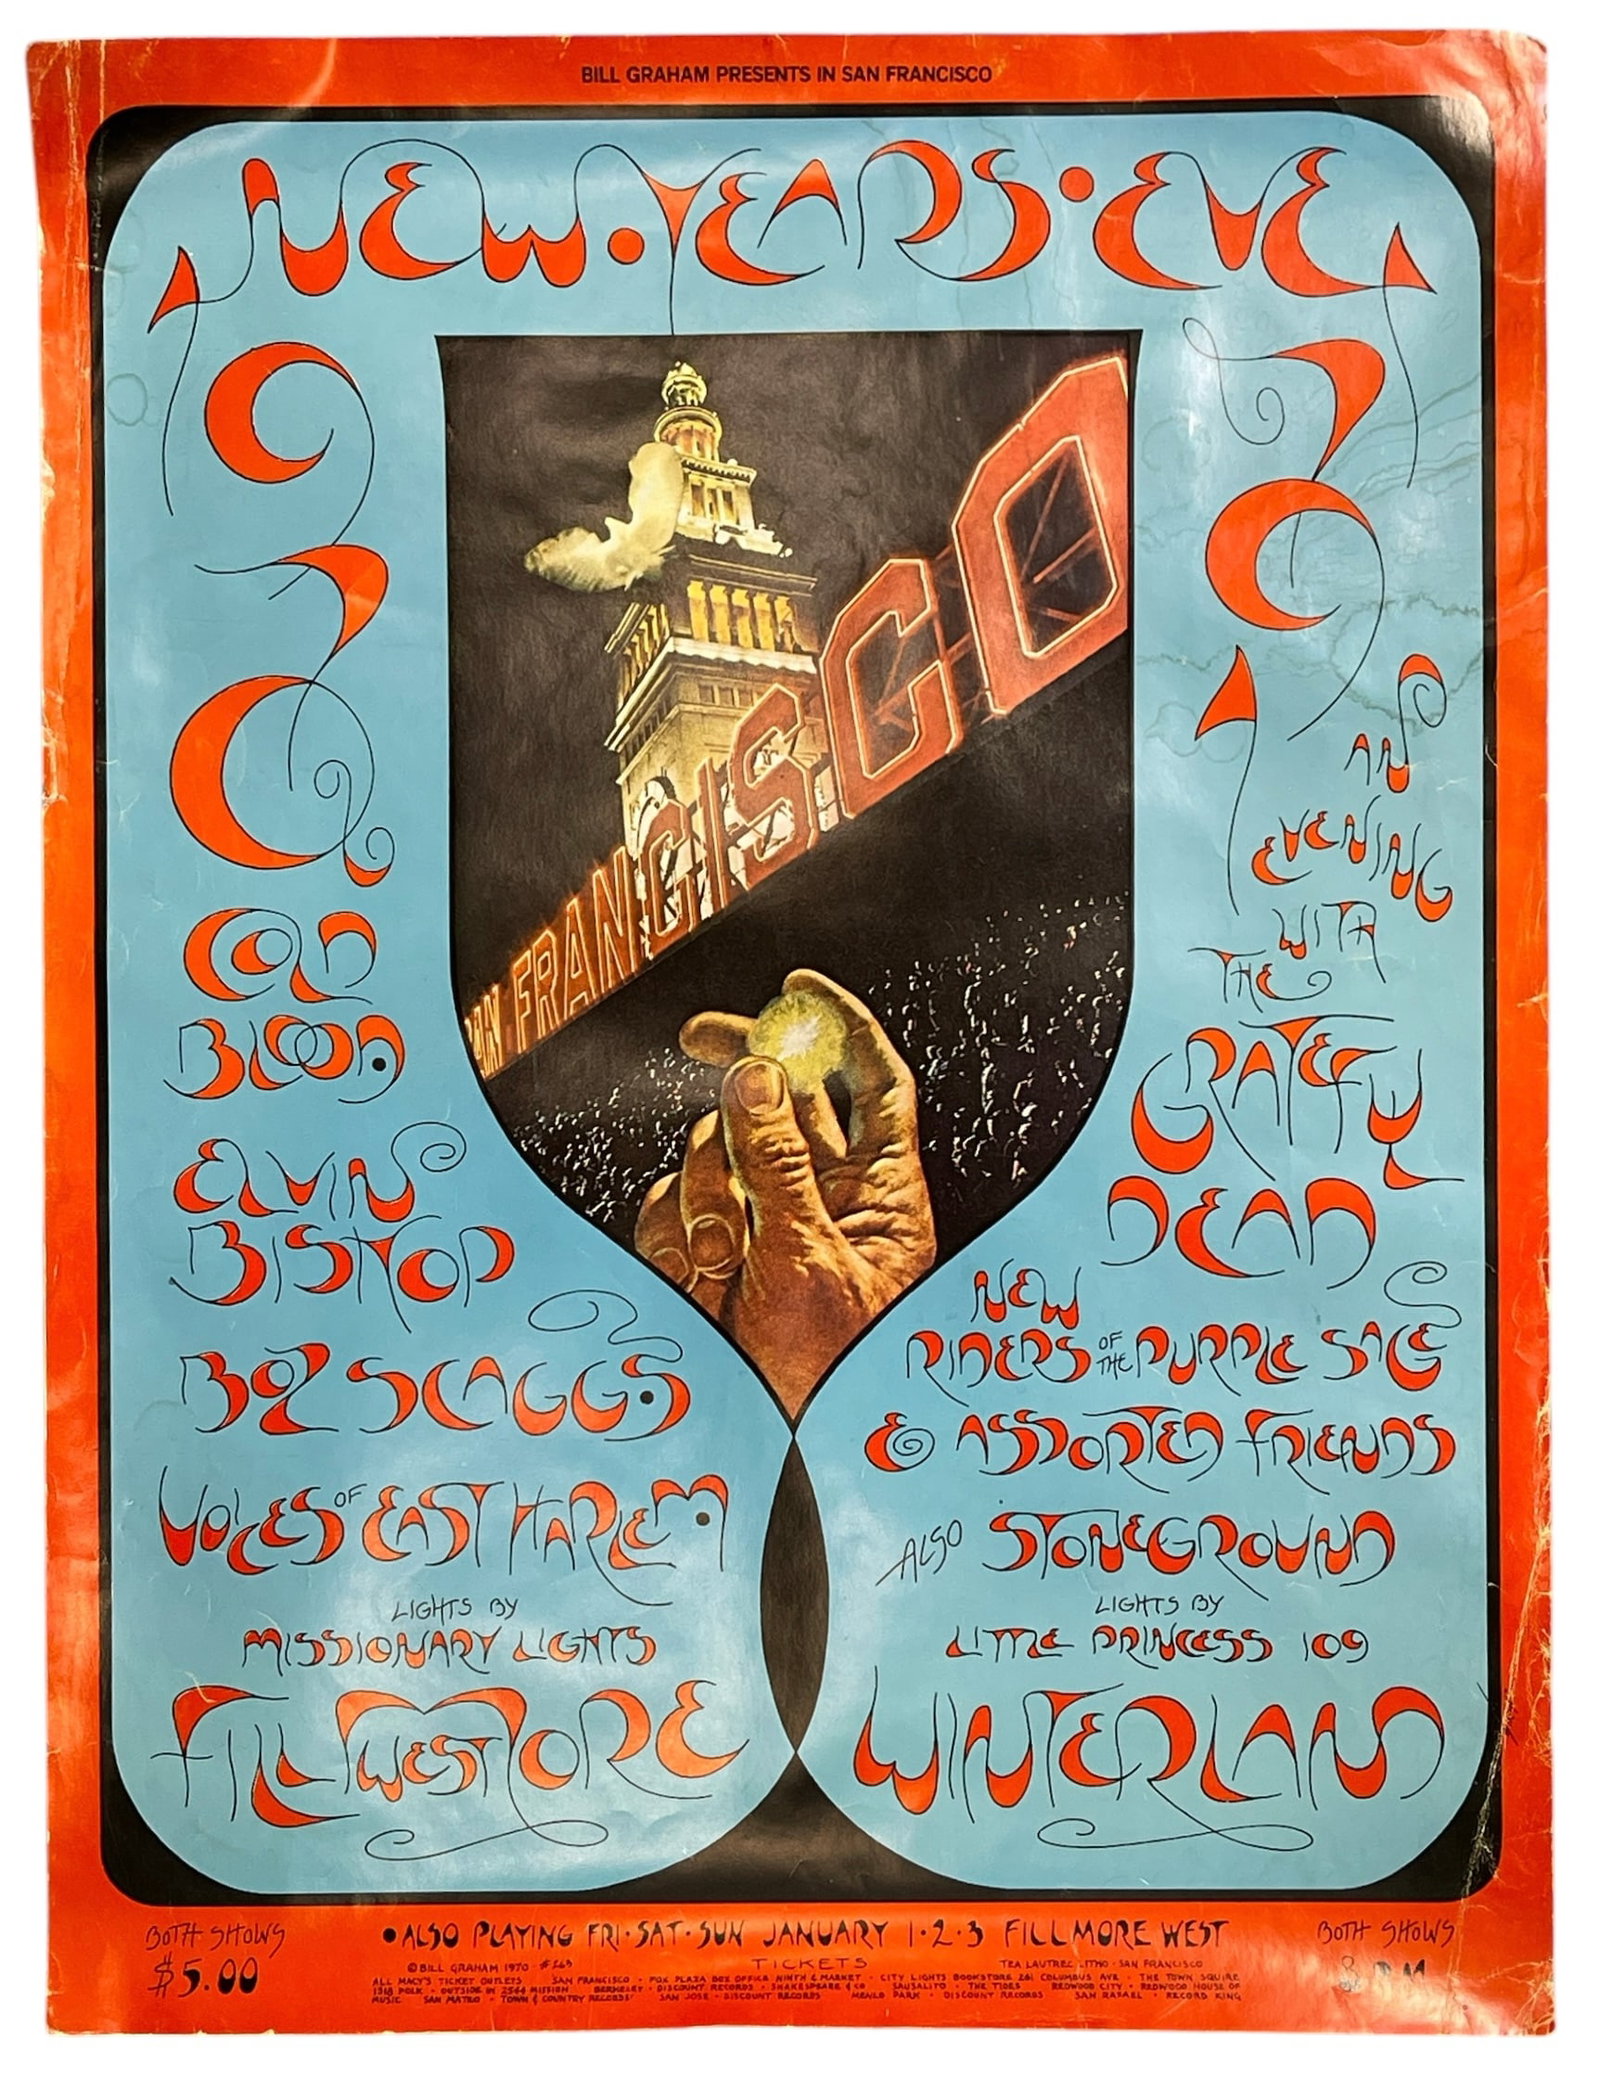 BILL GRAHAM PRESENTS IN SAN FRANCISCO
NEW • YEARS • EVE
1970
1971
SAN FRANCISCO
COLD
BLOOD •
ELVIN
BISHOP
BOZ SCAGGS •
VOICES OF EAST HARLEM •
LIGHTS BY
MISSIONARY LIGHTS
FILLMORE WEST
AN
EVENING
WITH
THE
GRATEFUL
DEAD
NEW
RIDERS OF THE PURPLE SAGE
& ASSORTED FRIENDS
ALSO STONEGROUND
LIGHTS BY
LITTLE PRINCESS 109
WINTERLAND
BOTH SHOWS
$5.00
• ALSO PLAYING FRI • SAT • SUN JANUARY 1 • 2 • 3 FILLMORE WEST
BOTH SHOWS
8 P.M.
© BILL GRAHAM 1970
TICKETS
TEA LAUTREC LITHO • SAN FRANCISCO
ALL MACY'S TICKET OUTLETS SAN FRANCISCO • FOX PLAZA BOX OFFICE NINTH & MARKET • CITY LIGHTS BOOKSTORE 261 COLUMBUS AVE • THE TOWN SQUIRE
1318 POLK • OUTSIDE IN 2544 MISSION BERKELEY • DISCOUNT RECORDS • SHAKESPEARE & CO SAUSALITO • THE TIDES REDWOOD CITY • REDWOOD HOUSE OF
MUSIC SAN MATEO • TOWN & COUNTRY RECORDS SAN JOSE • DISCOUNT RECORDS MENLO PARK • DISCOUNT RECORDS SAN RAFAEL • RECORD KING